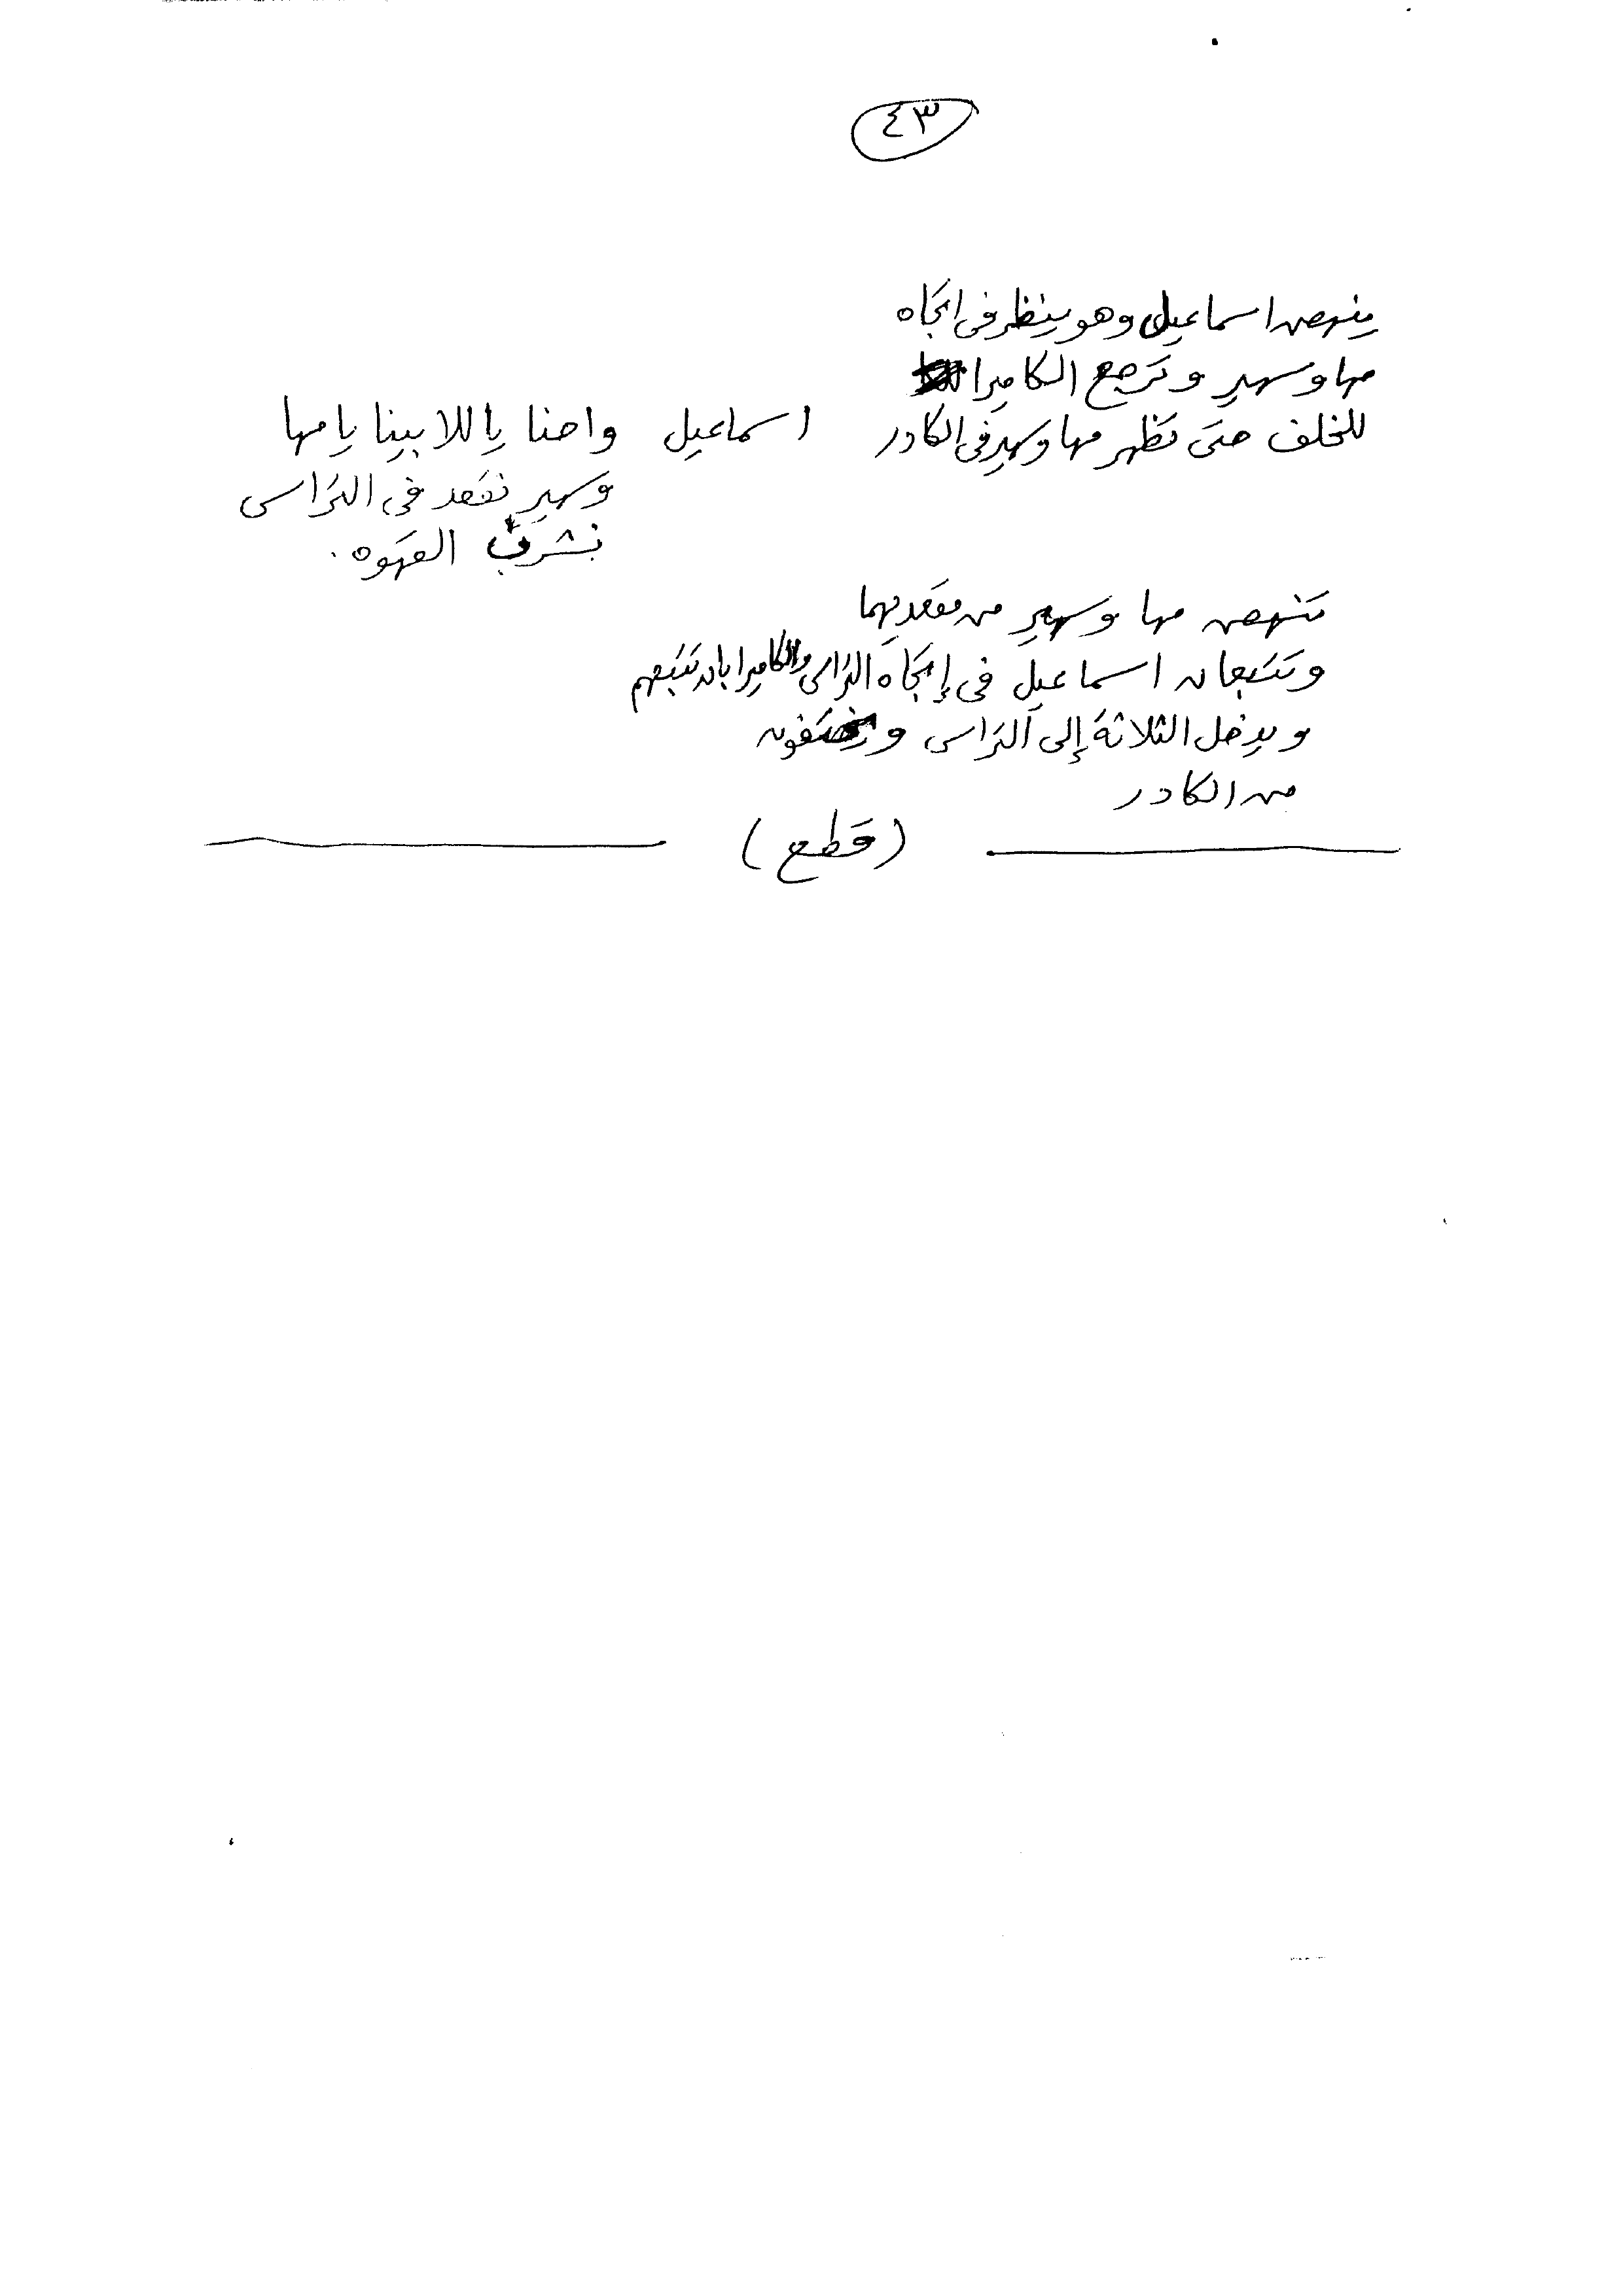 ٤٣
ينهض اسماعيل وهو ينظر فى اتجاه
مها وسهير وترجع الكاميرا
للخلف حتى تظهر مها وسهير فى الكادر
اسماعيل واحنا ياللا بينا يا مها
وسهير نقعد فى التراس
نشرب القهوه .
تنهض مها وسهير من مقعديهما
وتتبعان اسماعيل فى إتجاه التراس والكاميرا بان تتبعهم
ويدخل الثلاثة إلى التراس ويختفون
من الكادر
(قطع)